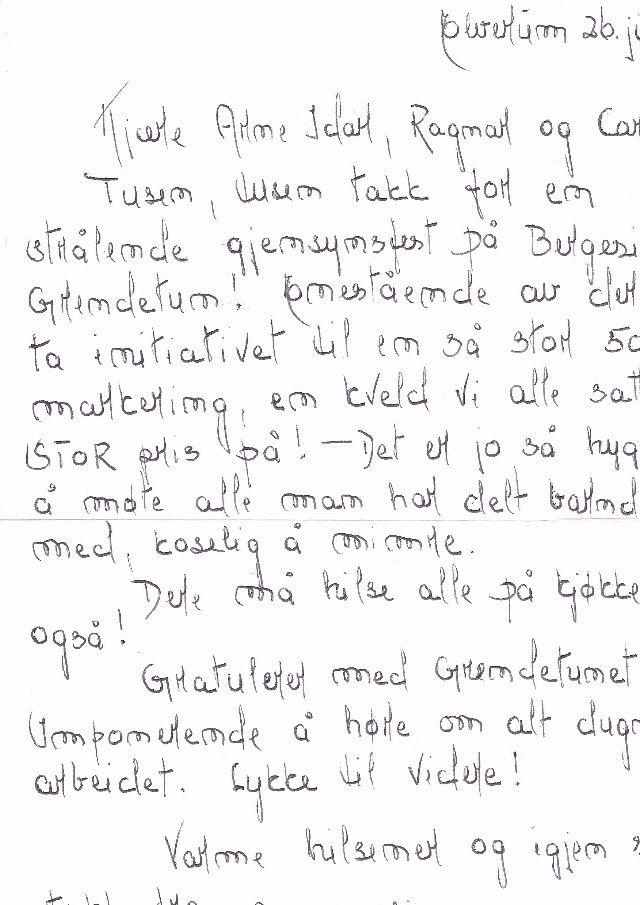 Elverum 26. ju
Kjære Arne Idar, Ragnar og Car
Tusen, tusen takk for en
strålende gjensynsfest på Bergesi
Grendetun! Enestående av der
ta initiativet til en så stor 50
markering, en kveld vi alle sat
STOR pris på! – Det er jo så hyg
å møte alle man har delt barnd
med, koselig å mimre.
Dere må hilse alle på kjøkke
også!
Gratulerer med Grendetunet
Imponerende å høre om alt dugn
arbeidet. Lykke til videre!
Varme hilsener og igjen